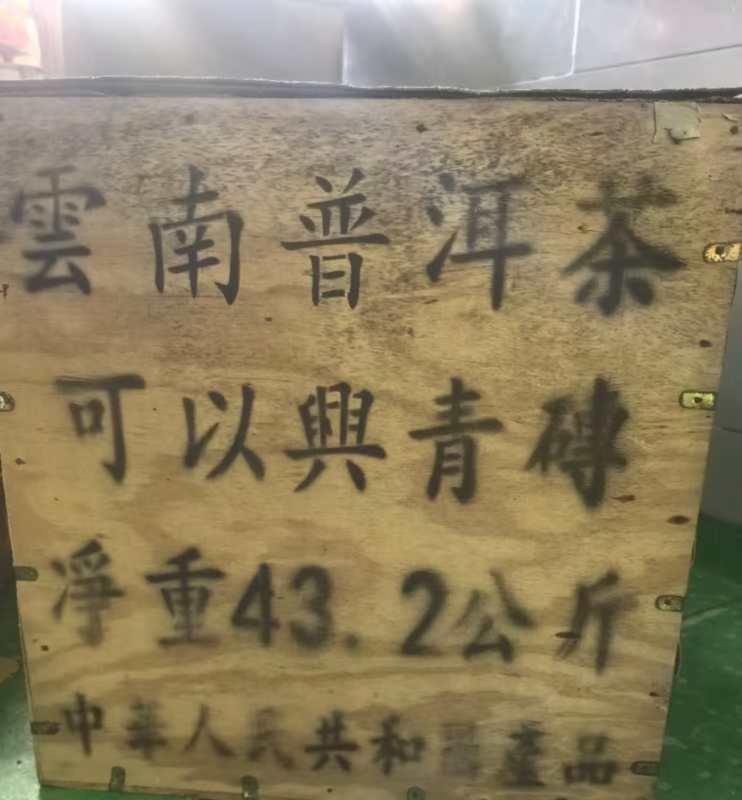 雲南普洱茶
可以興青磚
淨重43.2公斤
中華人民共和產品